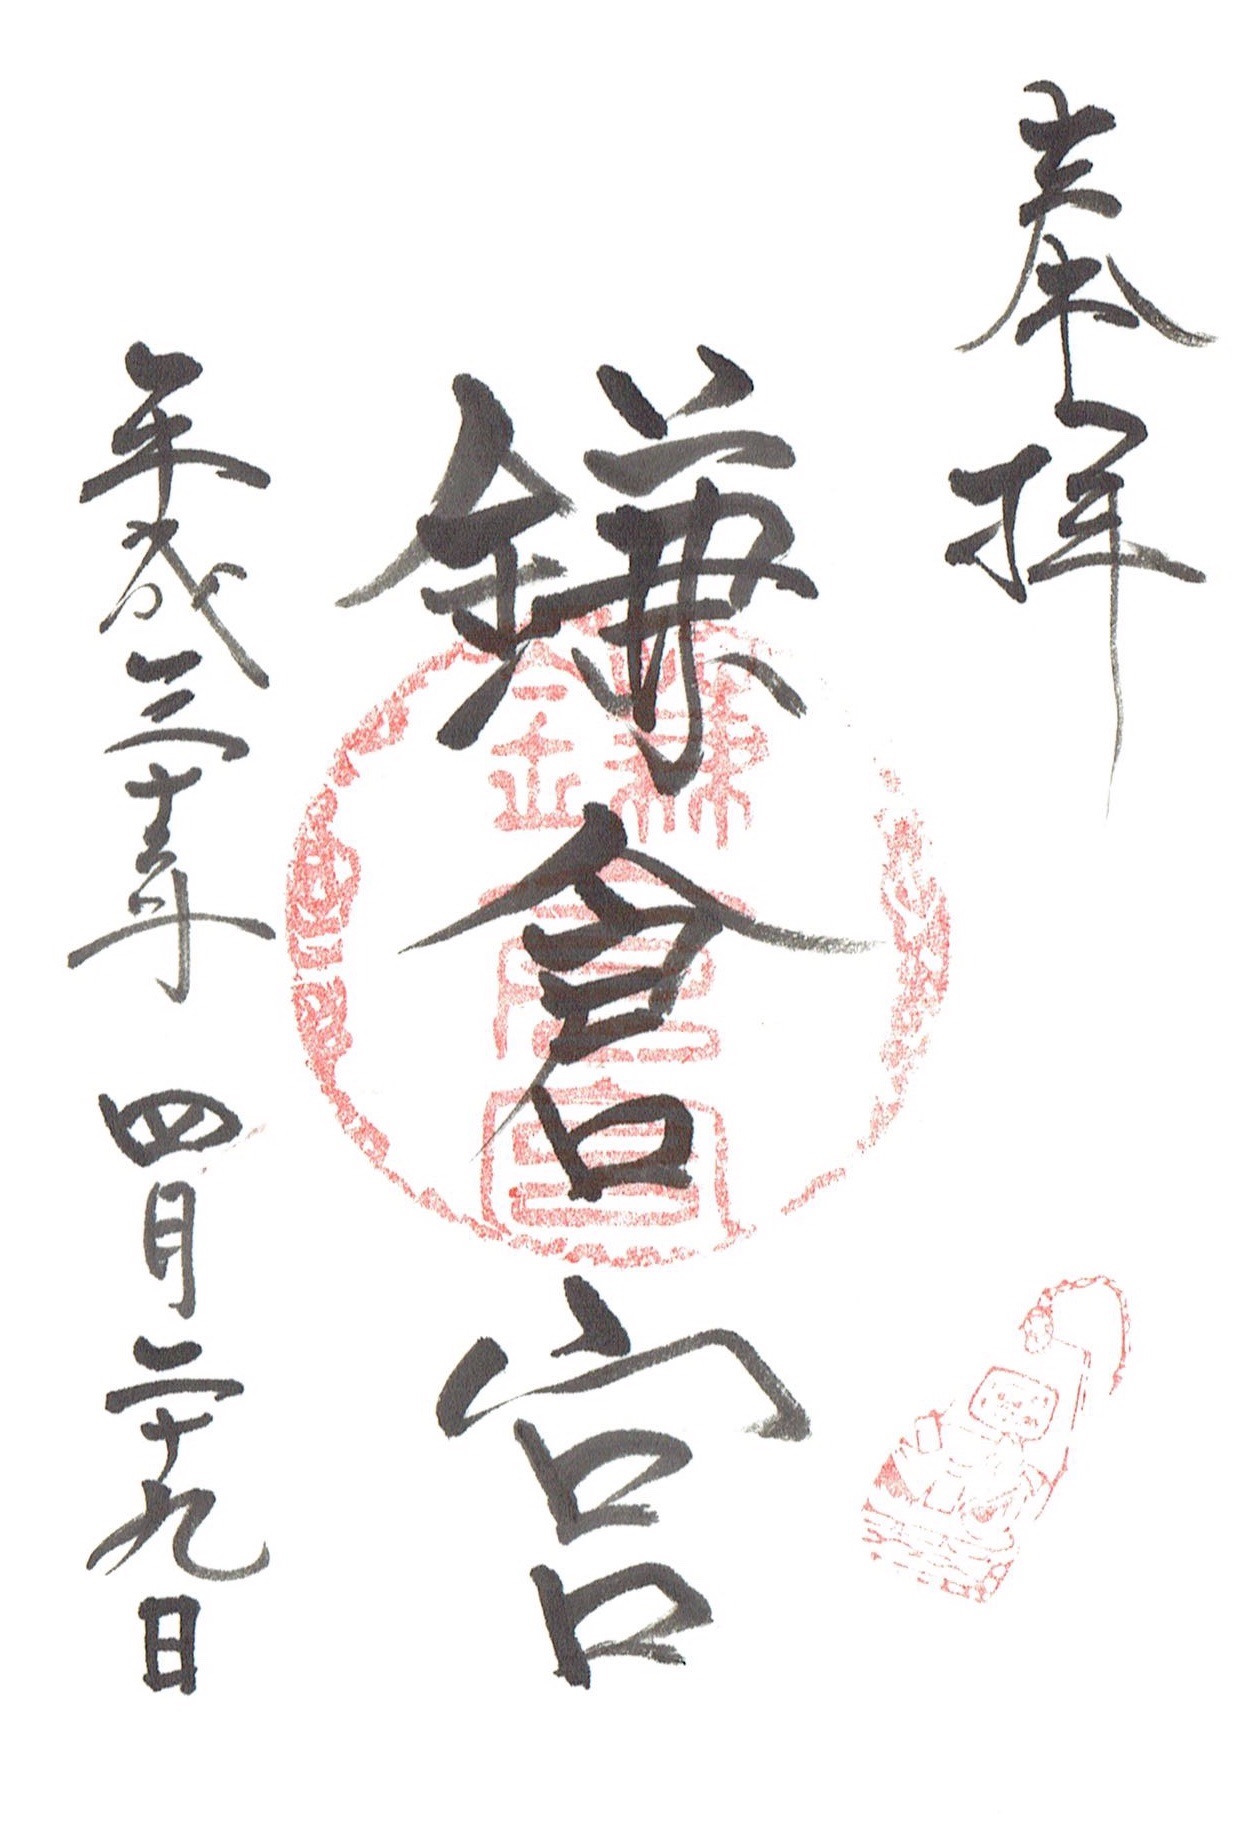 奉拝
鎌倉宮
平成三十年 四月二十九日
鎌倉宮